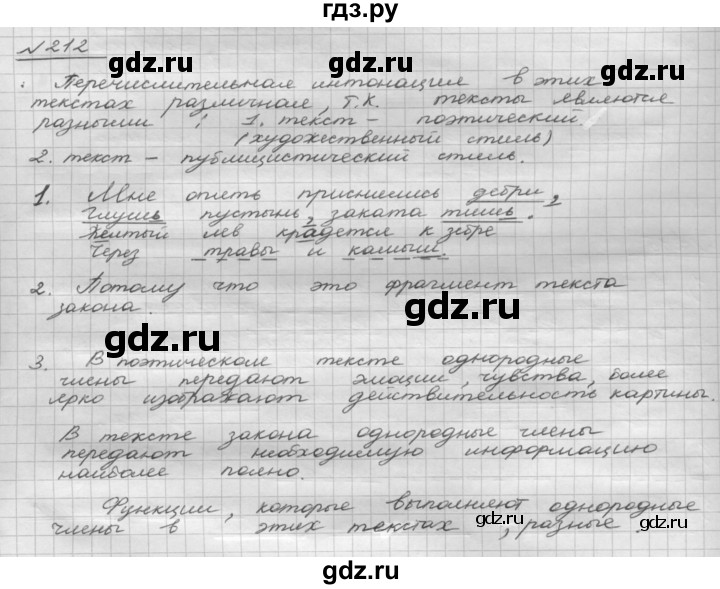 гдз.ру
№212
Перечислительная интонация в этих
текстах различная, т.к. тексты являются
разными: 1. текст - поэтический.
(художественный стиль)
2. текст - публицистический стиль.
1. Мне опять приснились дебри,
Глушь пустынь, заката тишь.
Желтый лев крадется к зебре
Через травы и камыш.
2. Потому что это фрагмент текста
закона.
3. В поэтическом тексте однородные
члены передают эмоции, чувства, более
ярко изображают действительность картины.
В тексте закона однородные члены
передают необходимую информацию
наиболее полно.
Функции, которые выполняют однородные
члены в этих текстах, разные.
gdz.ru
gdz.ru
gdz.ru
gdz.ru
gdz.ru
gdz.ru
gdz.ru
gdz.ru
gdz.ru
gdz.ru
gdz.ru
гдз.ру